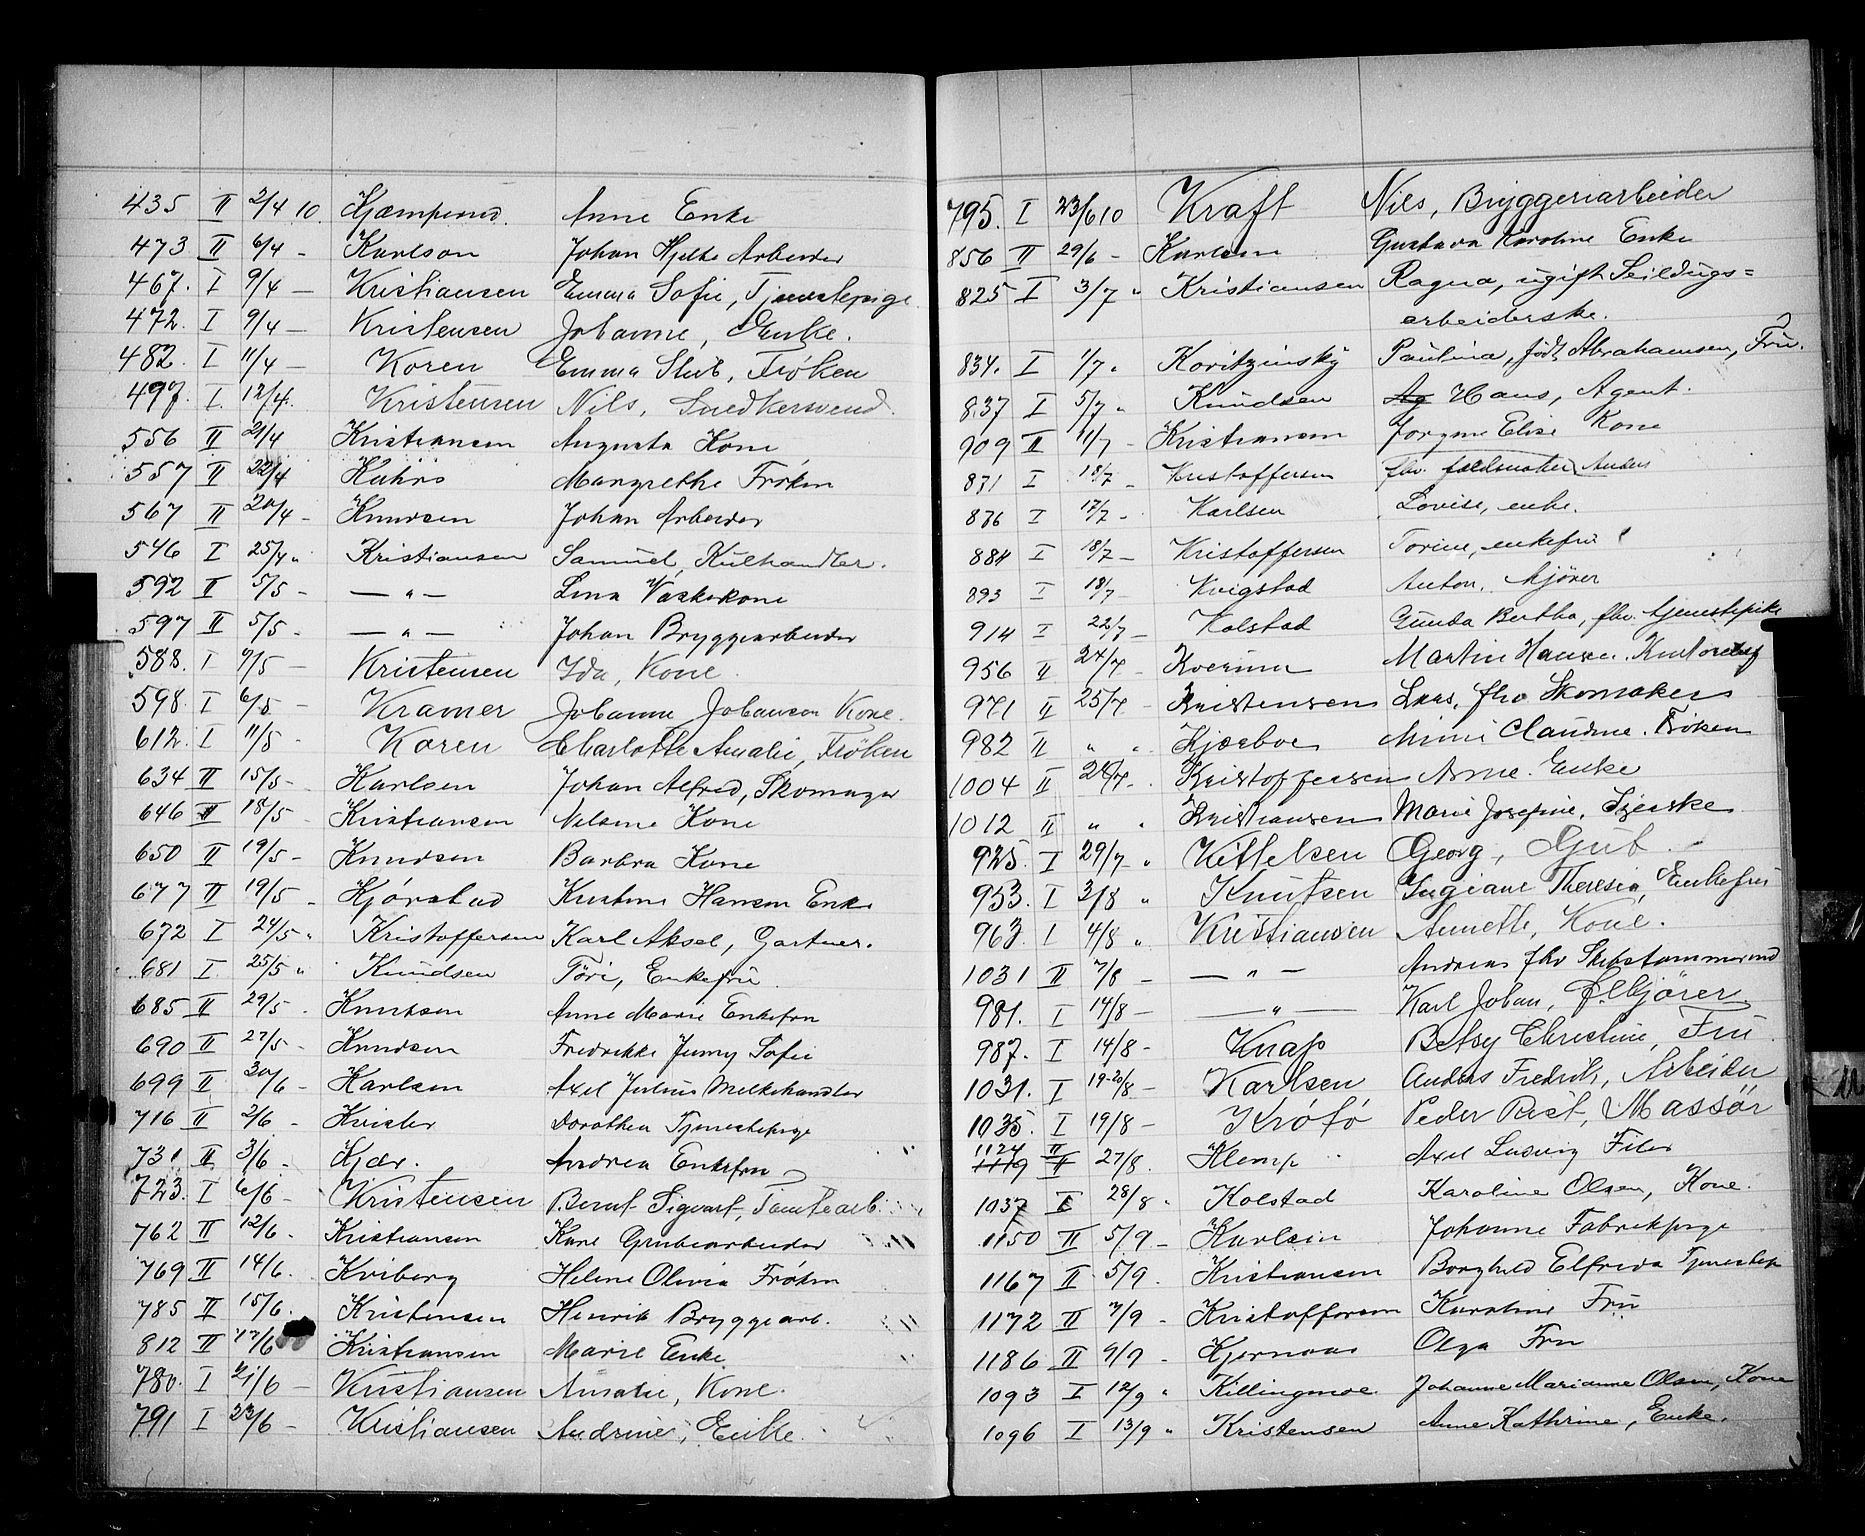 435 II 2/4 10. Kjæmperud. Anne Enke
473 II 6/4 - Karlson Johan Hjelte Arbeider
467. I 9/4 - Kristiansen Emma Sofie, Tjenestepige
472. I 9/4 - Kristensen Johanne, Enke.
482. I 11/4 - Koren Emma Stub, Frøken
497. I. 12/4. Kristensen Nils, Snedkersvend.
556 II 21/4 Kristiansen Augusta Kone
557 II 22/4 Margrethe Frøken
567 II 20/4 - Knudsen Johan Arbeider
546 I 25/4 " Kristiansen Samuel, Kulhandler.
592 II 5/5 - — " — Lina Vaskekone
597 II 5/5 - — " — Johan Bryggearbeider
588. I 9/5 - Kristensen Ida, Kone.
598. I 6/5 - Kramer Johanne Johansen Kone.
612. I 11/5 - Koren Charlotte Amalie, Frøken
634 II 15/5 - Karlsen Johan Alfred, Skomager
646 II 18/5 - Kristiansen Nilsine Kone
650 II 19/5 - Knudsen Barbra Kone
677 II 19/5 - Kjørstad Kristine Hansen Enke
672 I 24/5 " Kristoffersen Karl Aksel, Gartner.
681 I. 25/5 " Knudsen Tøri, Enkefru
685 II 29/5 . Knutsen Anne Marie Enkefru
690 II 27/5 - Knudsen Fredrikke Jenny Sofie
699 II 30/6 - Karlsen Axel Julius Melkehandler
716 II 2/6 - Kvister Dorothea Tjenestepige
731 II 3/6 - Kjær. Andrea Enkefru
723. I 6/6 - Kristensen Bernt Sigvart, Tomtearb.
762 II 12/6. Kristiansen Karl Grubearbeider
769 II 14/6. Kviberg Helene Olivia Frøken
785 II 15/6. Kristensen Henrik Bryggearb.
812 II 17/6 Kristiansen Marie Enke
780. I 21/6 - Kristiansen Amalie, Kone.
791 I 23/6 - Kristiansen Andrine, Enke.
795. I 23/6 10 Kraft Nils, Bryggeriarbeider
856 II 29/6 - Karlsen Gustava Karoline Enke
825 I 3/7 " Kristiansen Ragna, ugift Seildugs=
arbeiderske.
834. I 1/7 " Koritzinsky Paulina, født Abrahamsen, Fru.
837 I 5/7 " Knudsen Ag Hans, Agent.
909 II 11/7 - Kristiansen Jorgine Elise Kone
871 I 18/7 - Kristoffersen fhv. Anders
876 I 17/7 - Karlsen Lovise, enke.
884 I 18/7 - Kristoffersen Torine, enkefru
893 I 18/7 Kvigstad Anton, kjører
914 I 22/7 - Kolstad Gunda Bertha, fhv. tjenestepike
956 II 24/7 - Kverum Martin Hansen.
971 II 25/7 - Kristensen Lars, fhv Skomaker
982 II " " Kjærboe Mimi Claudine. Frøken
1004 II 28/7 - Kristoffersen Anne. Enke
1012 II " " Kristiansen Marie Josefine, Syerske
925. I 29/7 " Kittelsen Georg, Gut.
953. I 3/8 " Knutsen Ingiane Theresia, Enkefru
963. I 4/8 " Kristiansen Annette, Kone.
1031 II 7/8 - — " — Andreas fhv Skibstømmermd
981. I 14/8 - — " — Karl Johan, Ølkjører
987. I 14/8 - Knap Betsy Christine, Fru
1031. I 19-20/8 - Karlsen Anders Fredrik, Arbeider
1035. I 19/8 - Krøtø Peder Rist, Massør
1124 II
1119 II 27/8. Klemp Axel Ludvig Filer
1037 I 28/8 " Kolstad Karoline Olsen, Kone.
1150 II 5/9 - Karlsen Johanne Fabrikpige
1167 II 5/9. Kristiansen Borghild Elfrida Tjenestep
1172 II 7/9 - Kristoffersen Karoline Fru
1186 II 9/9 - Kjernaas Olga Fru
1093 I 12/9 " Killingmoe Johanne Marianne Olsen, Kone
1096 I 13/9 " Kristensen Anne Kathrine, Enke.